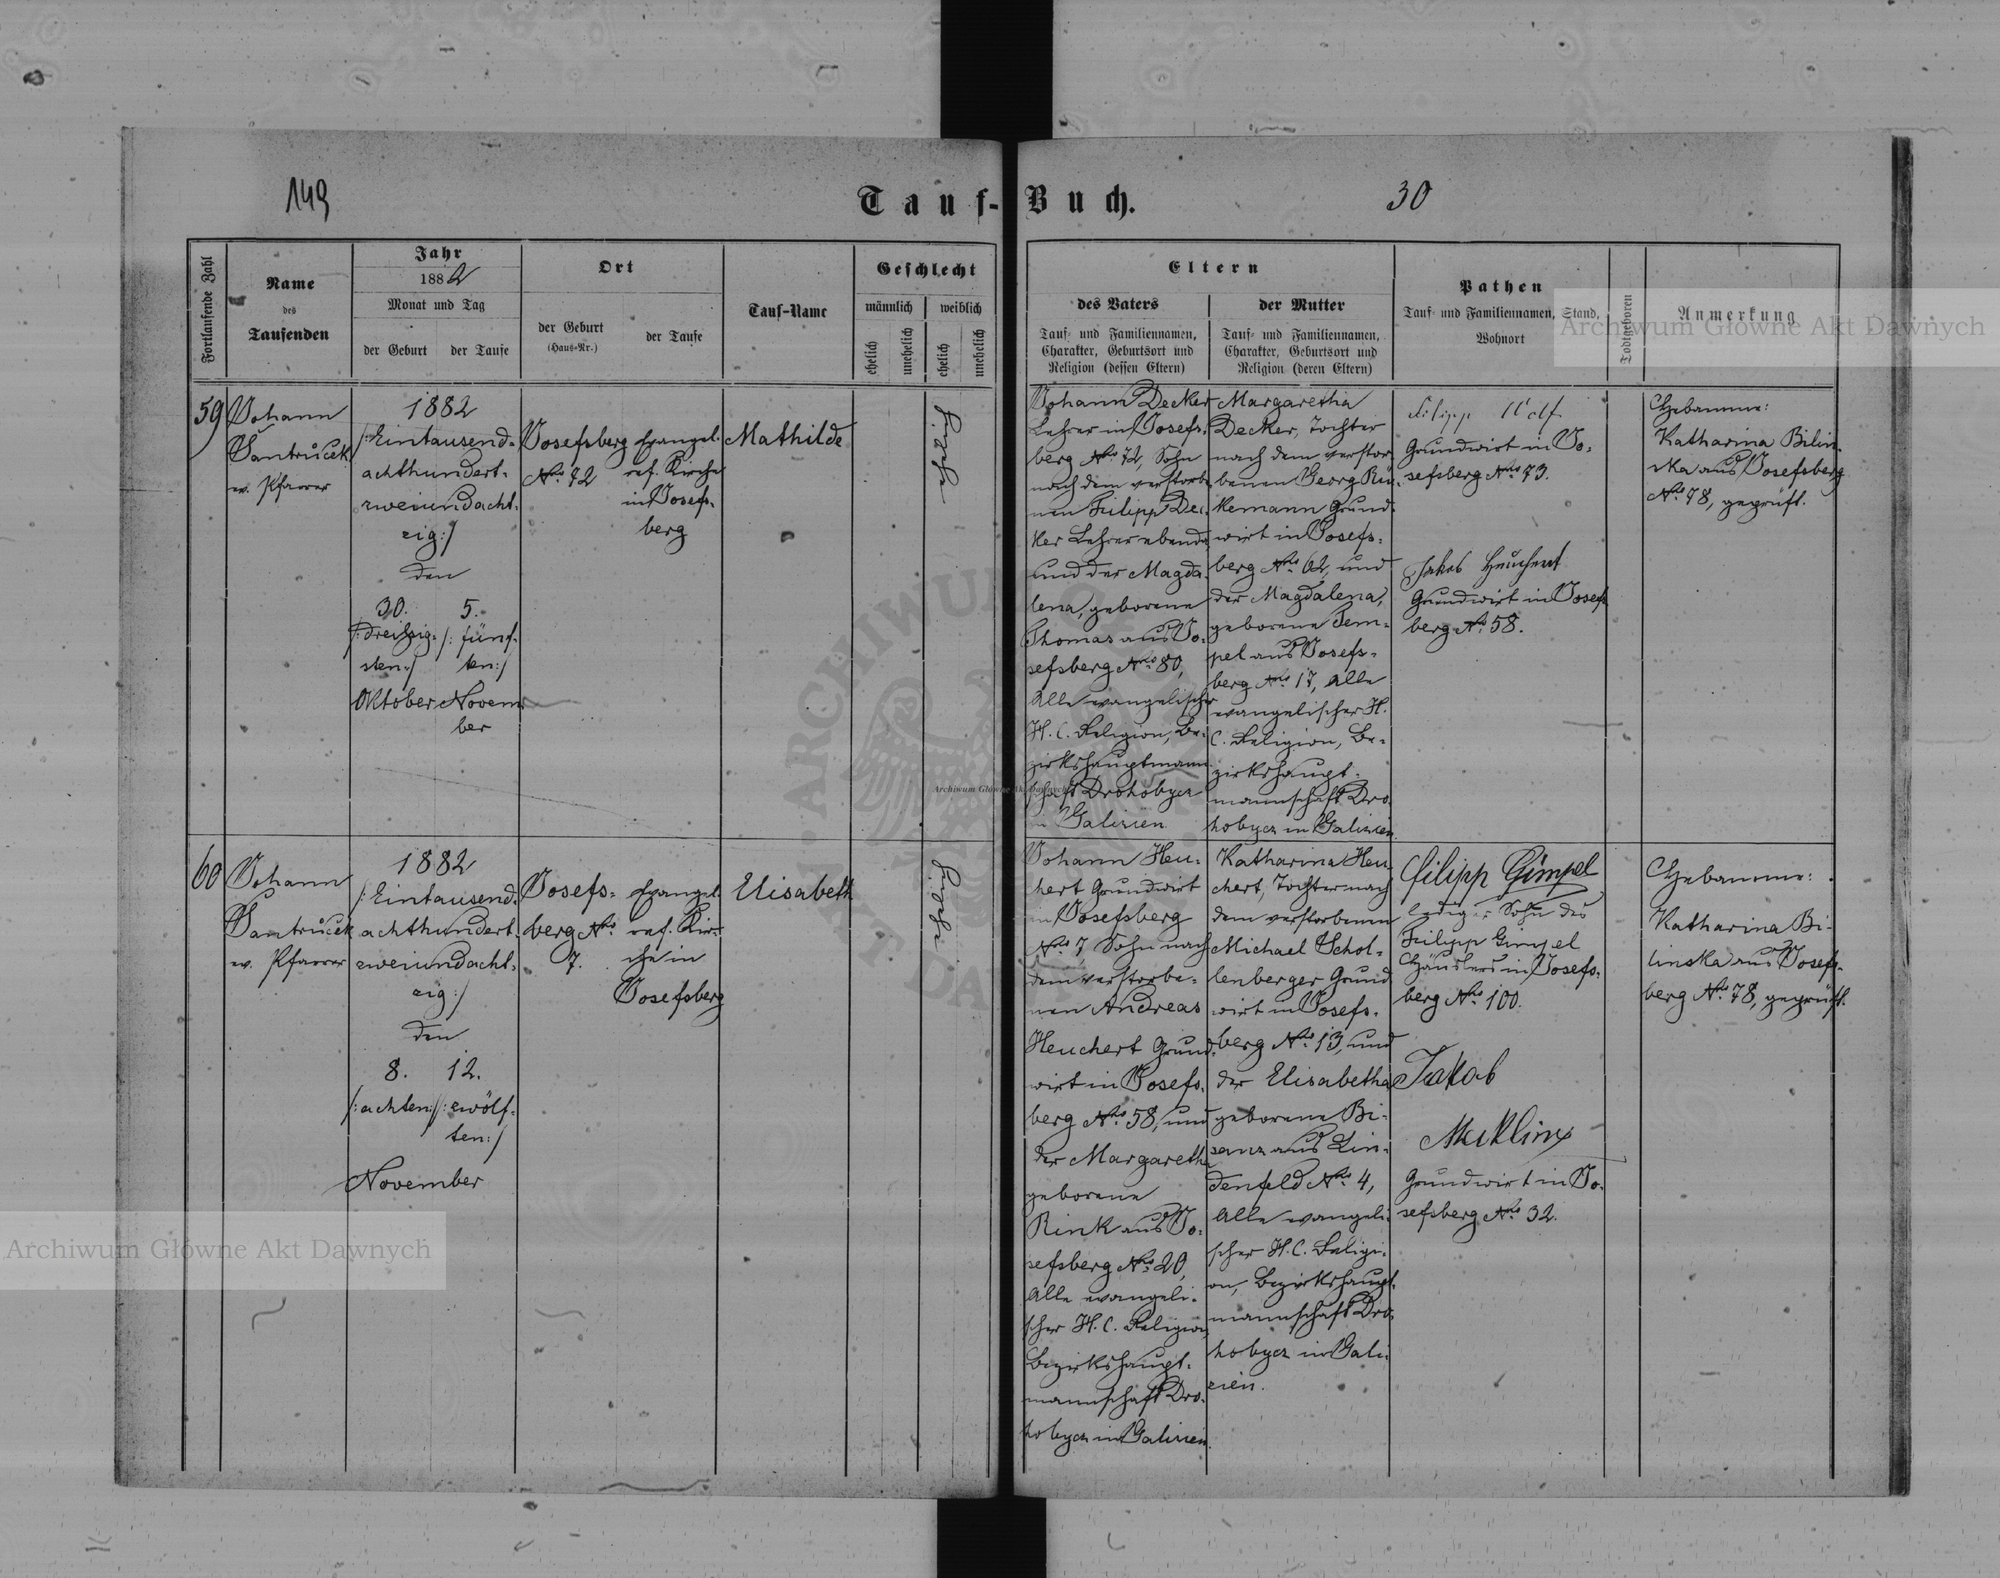 149
Tauf-Buch.
30
Fortlaufende Zahl
Name
des
Taufenden
Jahr
1882
Monat und Tag
der Geburt
der Taufe
Ort
der Geburt
(Haus-Nr.)
der Taufe
Tauf-Name
Geschlecht
männlich
weiblich
ehelich
unehelich
ehelich
unehelich
Eltern
des Vaters
Tauf- und Familiennamen,
Charakter, Geburtsort und
Religion (dessen Eltern)
der Mutter
Tauf- und Familiennamen,
Charakter, Geburtsort und
Religion (deren Eltern)
Pathen
Tauf- und Familiennamen, Stand,
Wohnort
Todtgeboren
Anmerkung
59
Johann
Santrůček
ev. Pfarrer
1882
/:Eintausend-
achthundert-
zweiundacht-
zig:/
den
30.
/:dreißig-
sten:/
Oktober
5.
/:fünf-
ten:/
Novem-
ber
Josefsberg
Nro 72
Evangel.
ref. Kirche
in Josefs-
berg
Mathilde
Johann Decker
Lehrer in Josefs-
berg Nro 72, Sohn
nach dem verstorbe-
nen Filipp De-
ker Lehrer ebenda
und der Magda-
lena, geborene
Thomas aus Jo-
sefsberg Nro 80,
Alle evangelischer
H. C. Religion, Be-
zirkshauptmann-
schaft Drohobycz
in Galizien
Margaretha
Decker, Tochter
nach dem verstor-
benen Georg Rü-
kemann Grund-
wirt in Josefs-
berg Nro 62, und
der Magdalena,
geborene Tem-
pel aus Josefs-
berg Nro 17, Alle
evangelischer H.
C. Religion, Be-
zirkshaupt-
mannschaft Dro-
hobycz in Galizien.
Filipp Wolf
Grundwirt in Jo-
sefsberg Nro 73.
Jakob Heuchert
Grundwirt in Josefs-
berg No 58.
Hebamme:
Katharina Bilin-
ska aus Josefsberg
Nro 78, geprüft.
60
Johann
Santrůček
ev. Pfarrer
1882
/:Eintausend-
achthundert-
zweiundacht-
zig:/
den
8. 12.
/:achten:/ /:zwölf-
ten:/
November
Josefs-
berg Nro
7.
Evangel.
ref. Kir-
che in
Josefsberg
Elisabeth
Johann Heu-
chert Grundwirt
in Josefsberg
Nro 7, Sohn nach
dem verstorbe-
nen Andreas
Heuchert Grund-
wirt in Josefs-
berg Nro 58, und
der Margaretha
geborene
Rink aus Jo-
sefsberg Nro 20,
Alle evangeli-
scher H. C. Religion,
Bezirkshaupt-
mannschaft Dro-
hobycz in Galizien.
Katharina Heu-
chert, Tochter nach
dem verstorbenen
Michael Schol-
lenberger Grund-
wirt in Josefs-
berg Nro 13, und
der Elisabetha
geborene Bi-
sanz aus Lin-
denfeld Nro 4,
Alle evangeli-
scher H. C. Religi-
on, Bezirkshaupt-
mannschaft Dro-
hobycz in Gali-
zien.
Filipp Gimpel
lediger Sohn des
Filipp Gimpel
Häuslers in Josefs-
berg Nro 100.
Jakob
Grundwirt in Jo-
sefsberg Nro 32.
Hebamme:
Katharina Bi-
linska aus Josefs-
berg Nro 78, geprüft.
Archiwum Główne Akt Dawnych
Archiwum Główne Akt Dawnych
Archiwum Główne Akt Dawnych